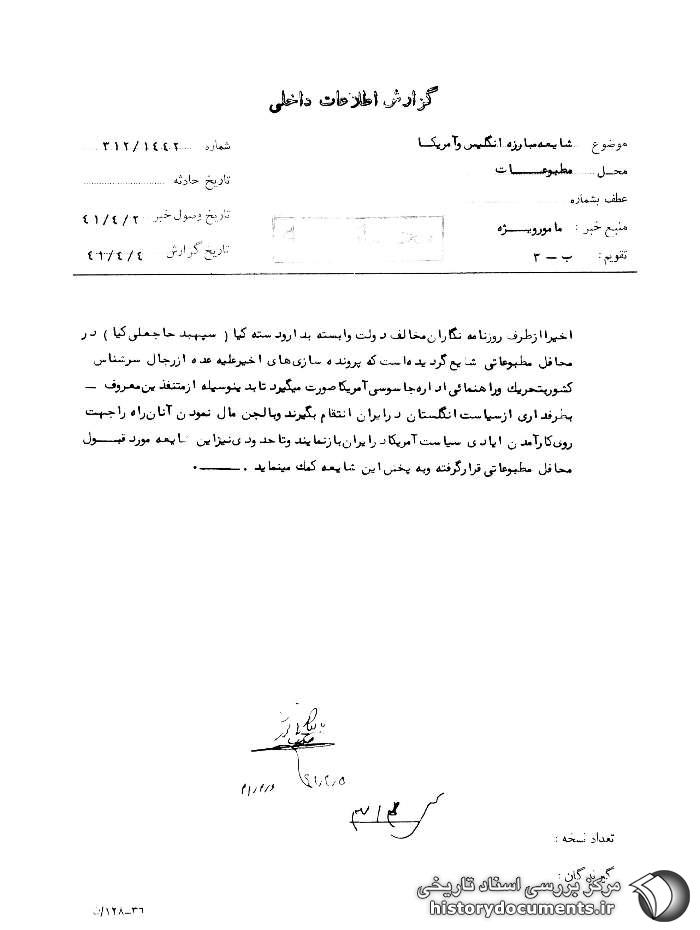 گزارش اطلاعات داخلی
موضوع شایعه مبارزه انگلیس و آمریکا
شماره ۳۱۲/۱۴۴۲
محل مطبوعات
تاریخ حادثه
عطف بشماره
تاریخ وصول خبر ۴۱/۴/۲
منبع خبر : مامور ویژه
تاریخ گزارش ۴۱/۴/۴
تقویم : ب - ۳
اخیرا از طرف روزنامه نگاران مخالف دولت وابسته بدارودسته کیا ( سپهبد حاجعلی کیا ) در
محافل مطبوعاتی شایع گردیده است که پرونده سازی های اخیر علیه عده از رجال سرشناس
کشور بتحریک و راهنمائی اداره جاسوسی آمریکا صورت میگیرد تا بدینوسیله از متنفذین معروف
بطرفداری از سیاست انگلستان در ایران انتقام بگیرند و با لجن مال نمودن آنان راه را جهت
روی کار آمدن ایادی سیاست آمریکا در ایران باز نمایند و تا حدودی نیز این شایعه مورد قبول
محافل مطبوعاتی قرار گرفته و به پخش این شایعه کمک مینماید .
۳۱۴
تعداد نسخه :
گیرندگان :
مرکز بررسی اسناد تاریخی
historydocuments.ir
۳۶-۱۲۸/ن